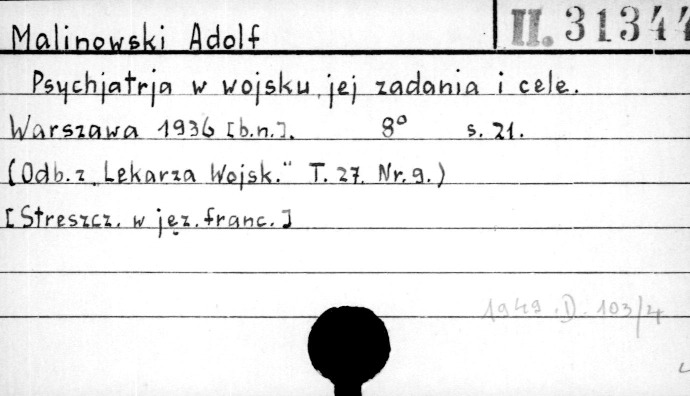 II. 31344
Malinowski Adolf
Psychjatrja w wojsku, jej zadania i cele.
Warszawa 1936 [b.n.]. 8° s. 21.
(Odb. z „Lekarza Wojsk." T. 27. Nr. 9.)
[Streszcz. w jęz. franc.]
1949. D. 103/4